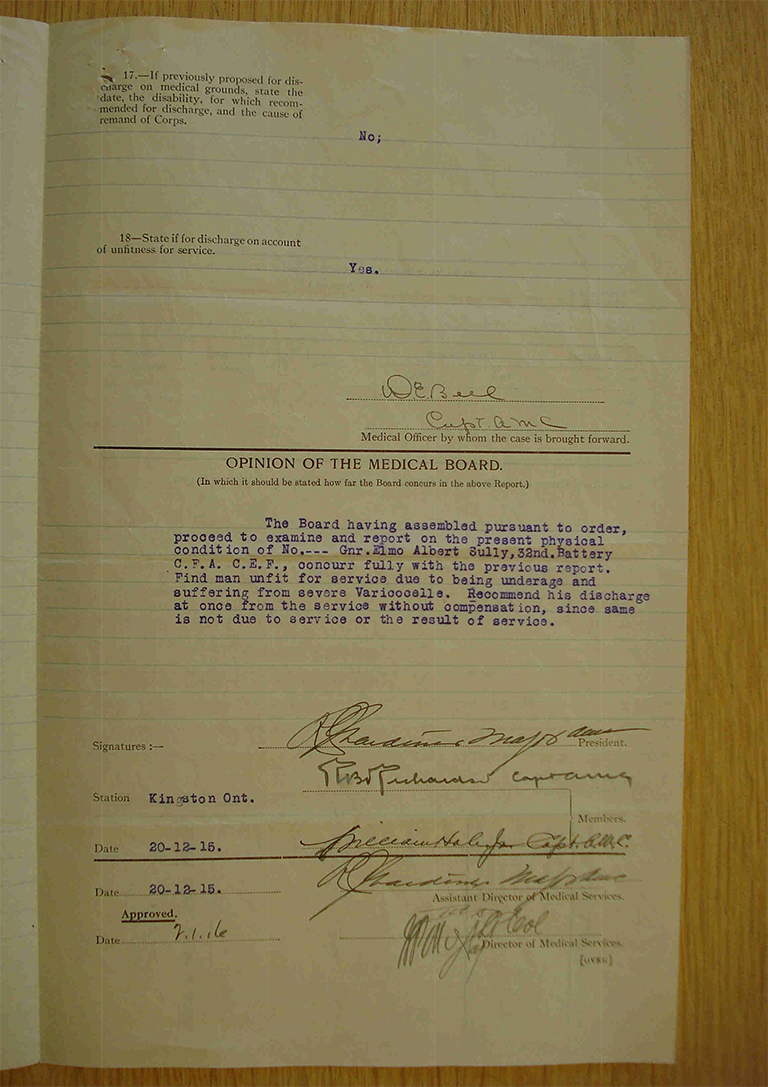 17.—If previously proposed for dis-
charge on medical grounds, state the
date, the disability, for which recom-
mended for discharge, and the cause of
remand of Corps.
No;
18—State if for discharge on account
of unfitness for service.
Yes.
D E Bell
Capt. A M C
Medical Officer by whom the case is brought forward.
OPINION OF THE MEDICAL BOARD.
(In which it should be stated how far the Board concurs in the above Report.)
The Board having assembled pursuant to order,
proceed to examine and report on the present physical
condition of No.--- Gnr.Elmo Albert Sully,32nd.Battery
C.F.A. C.E.F., concurr fully with the previous report.
Find man unfit for service due to being underage and
suffering from severe Varicocelle. Recommend his discharge
at once from the service without compensation, since same
is not due to service or the result of service.
Signatures :—
Major amc
President.
Richardson Capt amc
Station Kingston Ont.
Members.
Date 20-12-15.
William Hale Jr. Capt. A.M.C.
Date 20-12-15.
Major amc
Assistant Director of Medical Services.
Approved.
Date 2.1.16
Col
Director of Medical Services.
[OVER]